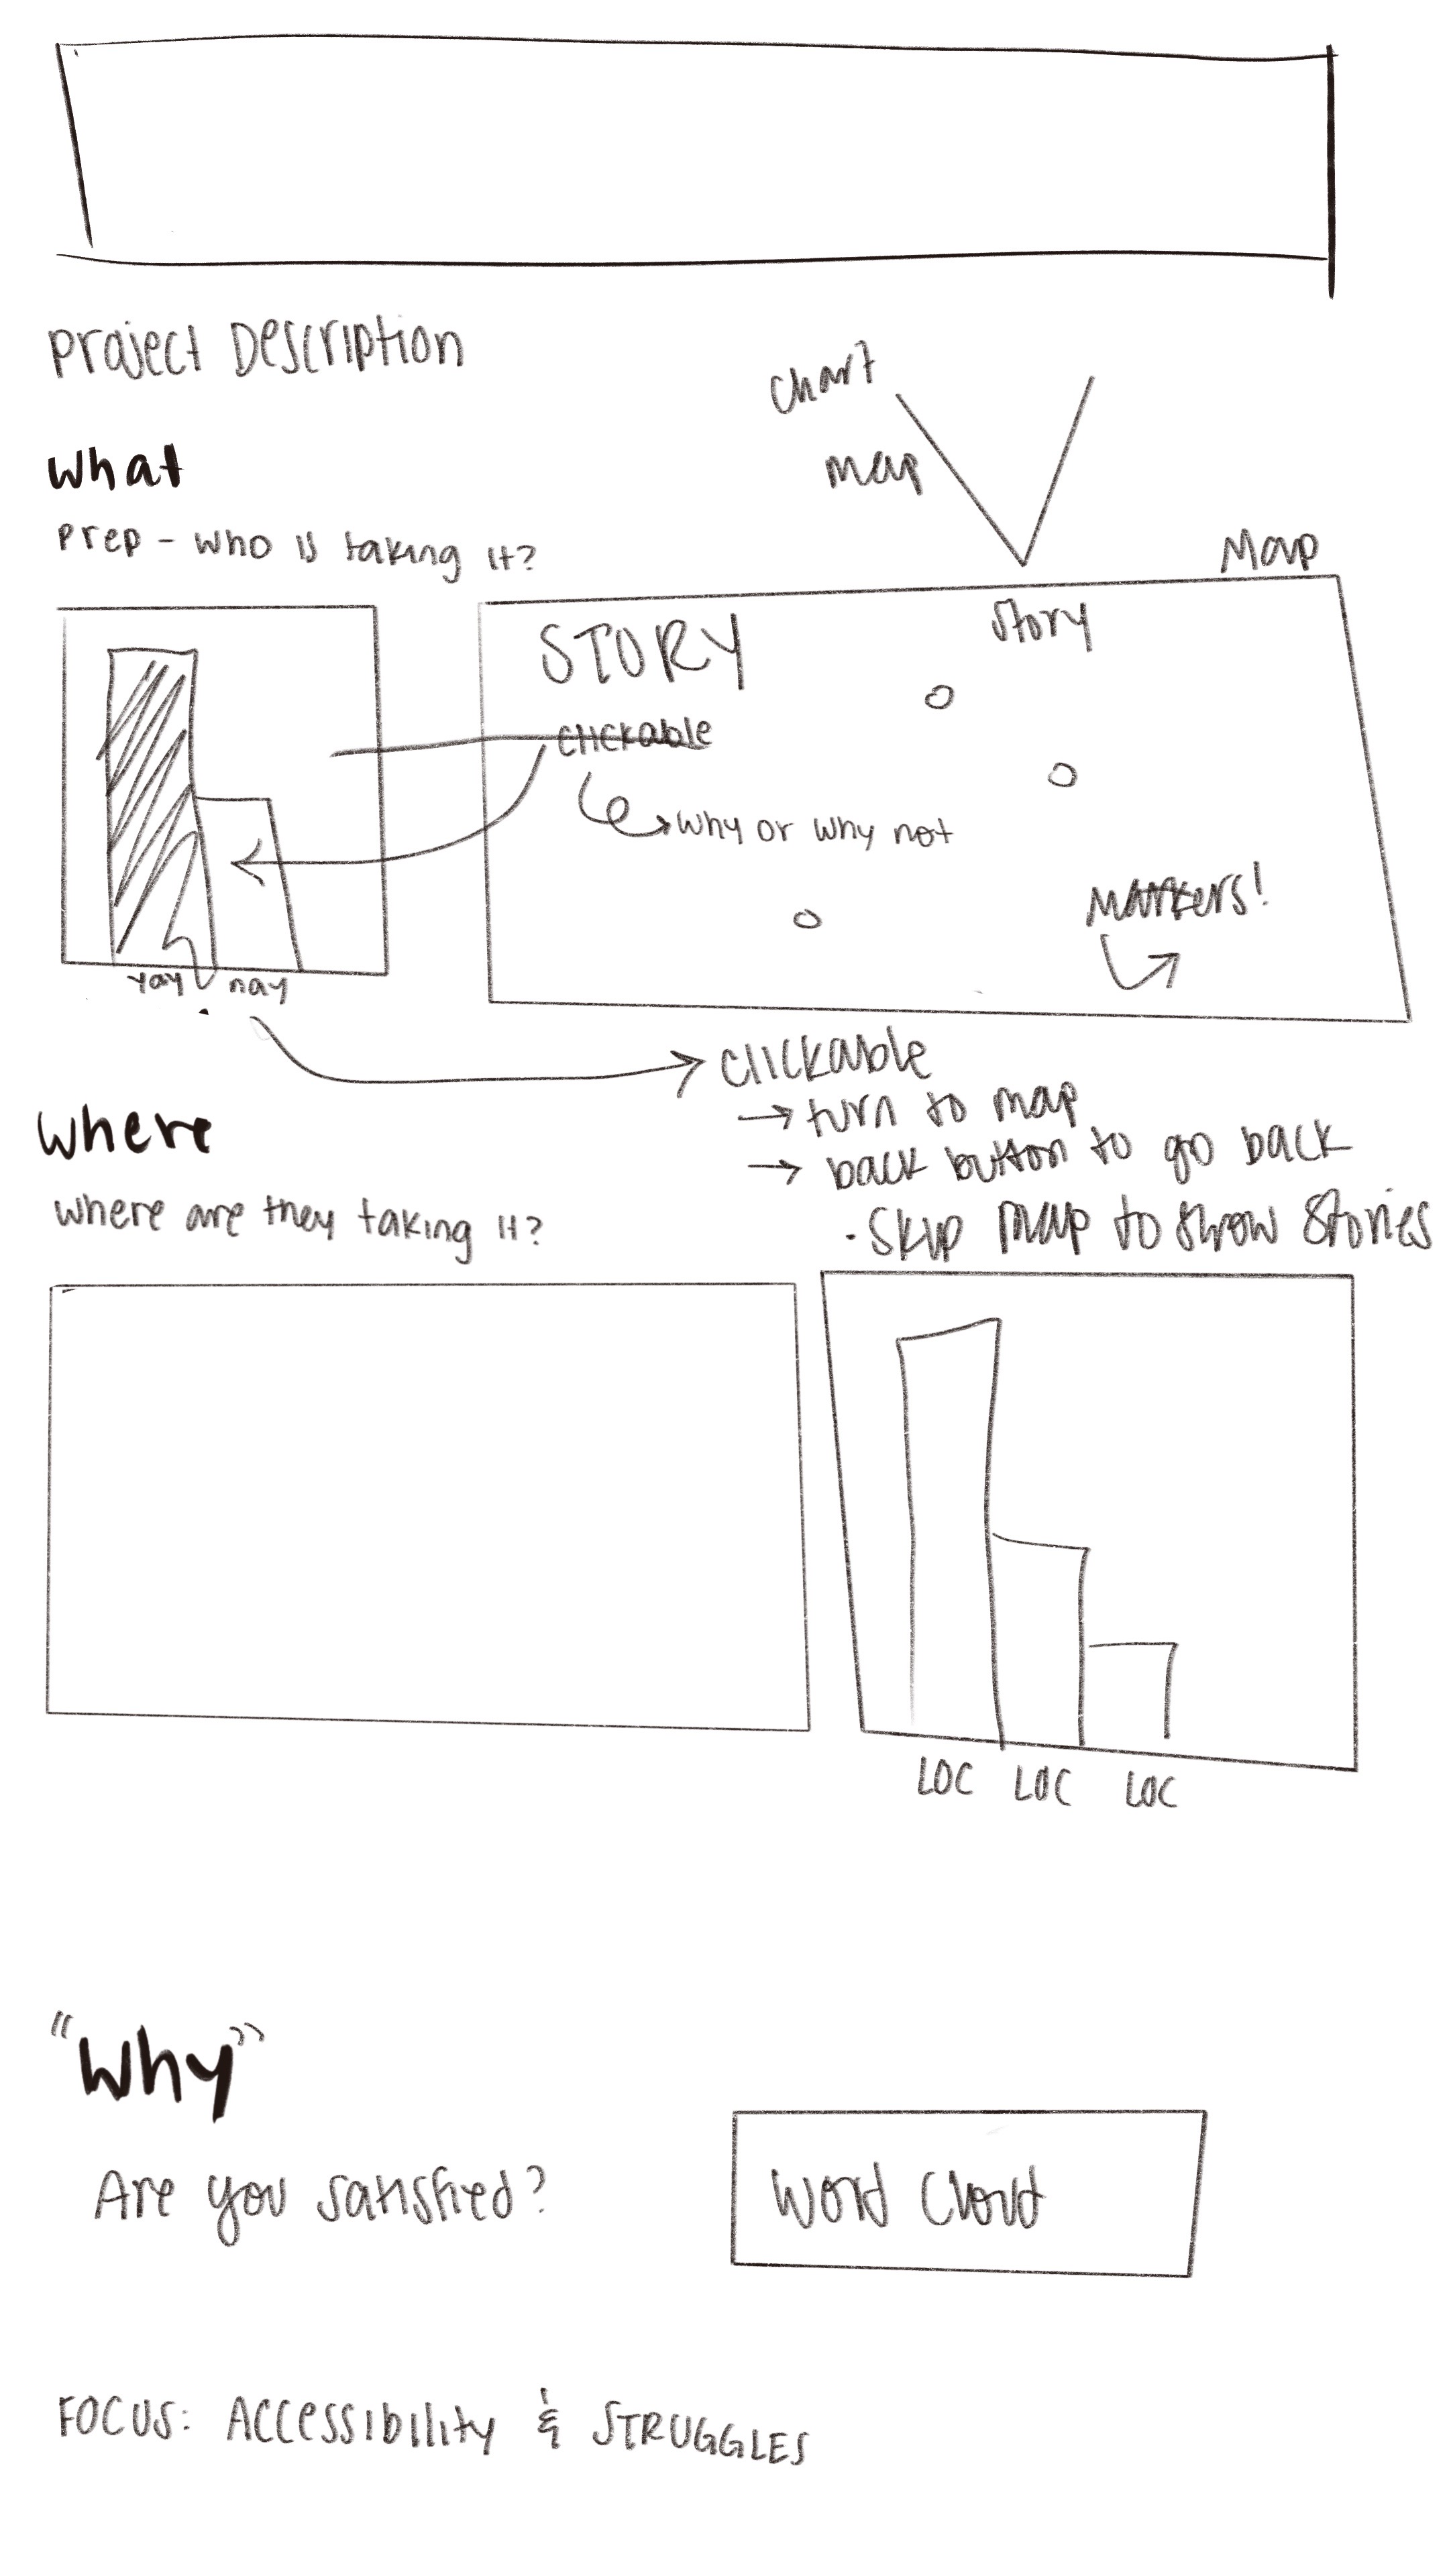 Project Description
chart
map
what
prep - who is taking it?
Map
STORY
story
clickable
why or why not
Markers!
yay nay
clickable
→ turn to map
→ back button to go back
· Skip map to show Stories
where
where are they taking it?
LOC LOC LOC
"Why"
Are you satisfied?
Word Cloud
FOCUS: Accessibility & STRUGGLES